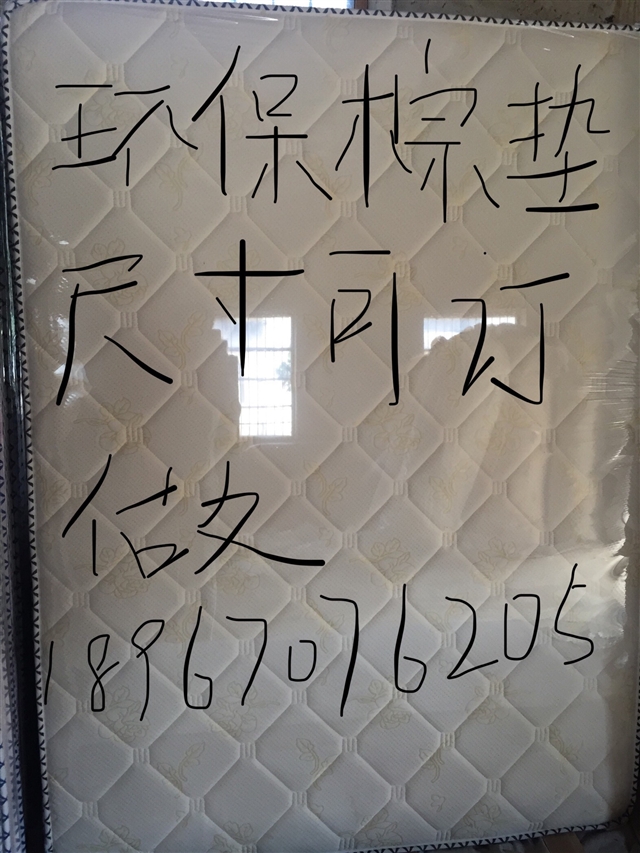 环保棕垫
尺寸可订
做
18967076205